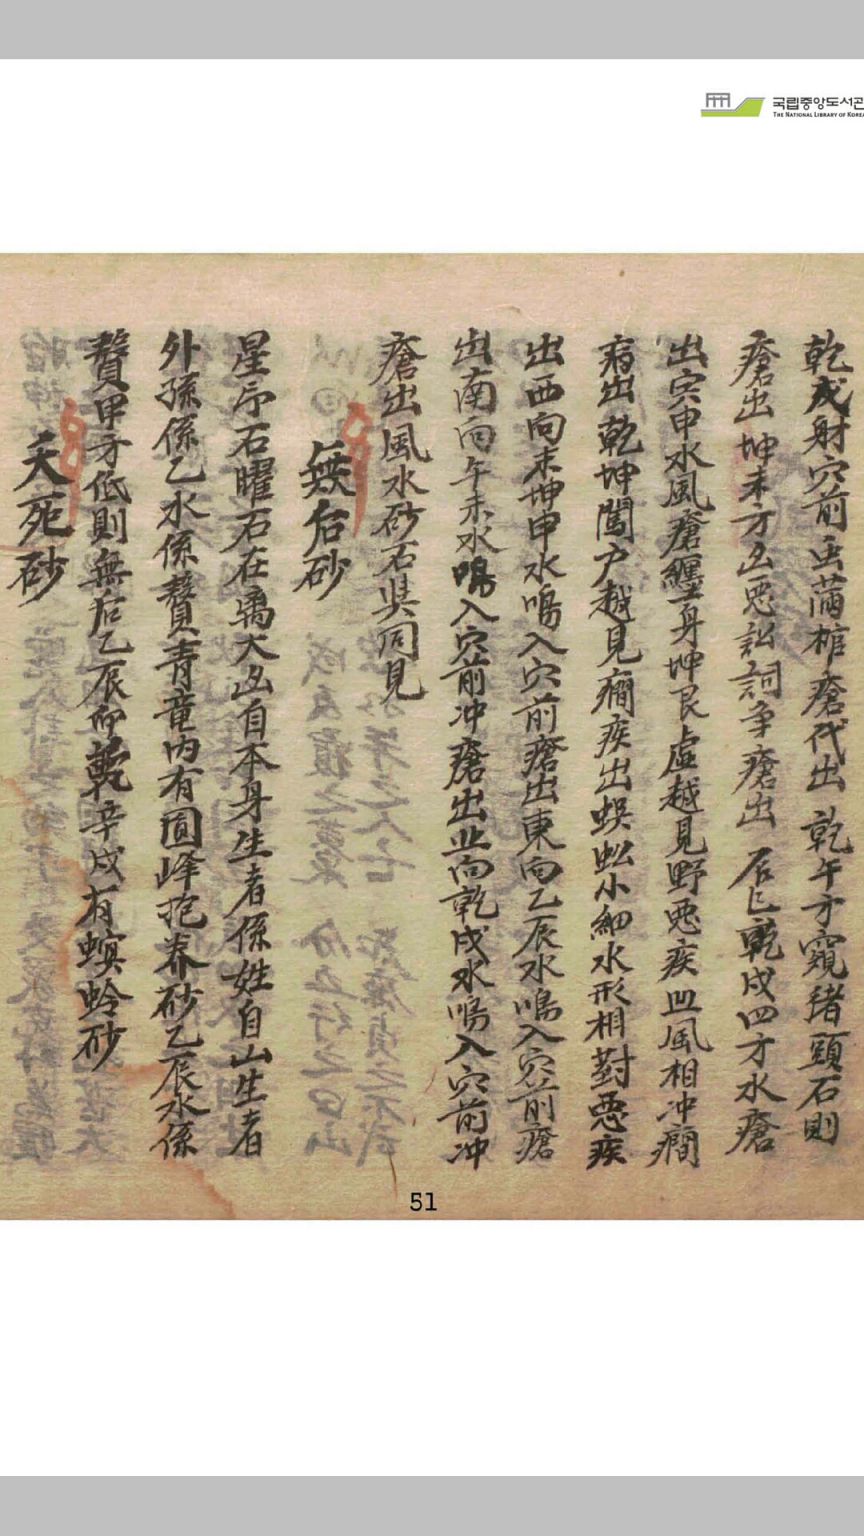 국립중앙도서관
THE NATIONAL LIBRARY OF KOREA
乾戌射穴前虫滿棺瘡代出 乾午方窺緖頭石則
瘡出坤未方出惡訟詞爭瘡出 辰巳乾戌四方水瘡
出寅申水風瘡纏身坤艮虛越見野惡疾凹風相冲癎
病出乾坤闖戶越見癎疾出蜈蚣小細水形相對惡疾
出西向未坤申水鳴入穴前瘡出東向乙辰水鳴入穴前瘡
出南向午未水鳴入穴前冲瘡出北向乾戌水鳴入穴前冲
瘡出風水砂石與同見
無后砂
星㡰石曜石在禹大出自本身生者係姓自山生者
外孫係乙水係贅靑童內有圓峰抱養砂乙辰水係
贅甲方低則無后乙辰㡰乾辛戌有螟蛉砂
夭死砂
51